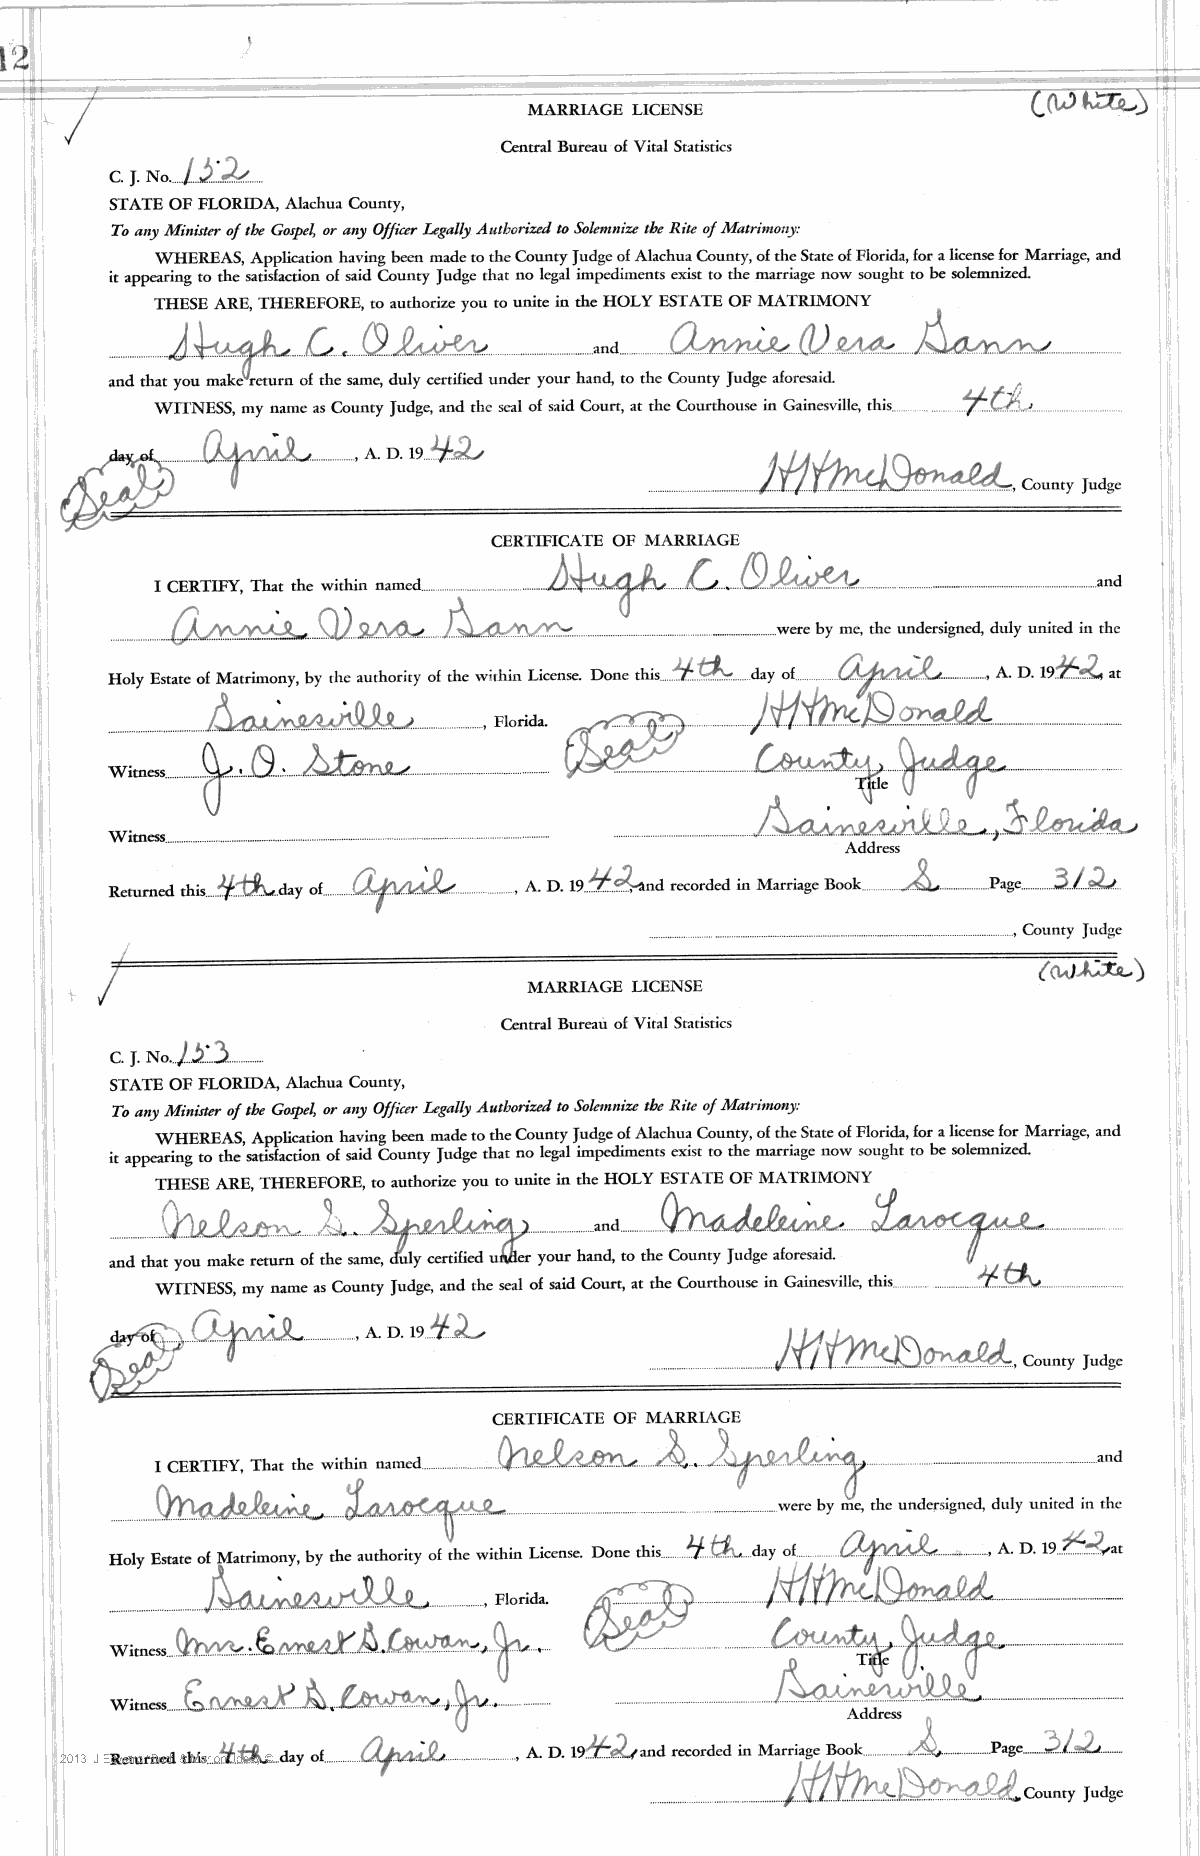 12
(White)
MARRIAGE LICENSE
Central Bureau of Vital Statistics
C. J. No. 152
STATE OF FLORIDA, Alachua County,
To any Minister of the Gospel, or any Officer Legally Authorized to Solemnize the Rite of Matrimony:
WHEREAS, Application having been made to the County Judge of Alachua County, of the State of Florida, for a license for Marriage, and
it appearing to the satisfaction of said County Judge that no legal impediments exist to the marriage now sought to be solemnized.
THESE ARE, THEREFORE, to authorize you to unite in the HOLY ESTATE OF MATRIMONY
Hugh C. Oliver and Annie Vera Gann
and that you make return of the same, duly certified under your hand, to the County Judge aforesaid.
WITNESS, my name as County Judge, and the seal of said Court, at the Courthouse in Gainesville, this 4th
day of April, A. D. 19 42
Seal
HHMcDonald, County Judge
CERTIFICATE OF MARRIAGE
I CERTIFY, That the within named Hugh C. Oliver and
Annie Vera Gann were by me, the undersigned, duly united in the
Holy Estate of Matrimony, by the authority of the within License. Done this 4th day of April, A. D. 19 42, at
Gainesville, Florida. Seal HHMcDonald
Witness J. O. Stone County Judge
Title
Witness Gainesville, Florida
Address
Returned this 4th day of April, A. D. 19 42 and recorded in Marriage Book S Page 312
, County Judge
(White)
MARRIAGE LICENSE
Central Bureau of Vital Statistics
C. J. No. 153
STATE OF FLORIDA, Alachua County,
To any Minister of the Gospel, or any Officer Legally Authorized to Solemnize the Rite of Matrimony:
WHEREAS, Application having been made to the County Judge of Alachua County, of the State of Florida, for a license for Marriage, and
it appearing to the satisfaction of said County Judge that no legal impediments exist to the marriage now sought to be solemnized.
THESE ARE, THEREFORE, to authorize you to unite in the HOLY ESTATE OF MATRIMONY
Nelson S. Sperling and Madeleine Larocque
and that you make return of the same, duly certified under your hand, to the County Judge aforesaid.
WITNESS, my name as County Judge, and the seal of said Court, at the Courthouse in Gainesville, this 4th
day of April, A. D. 19 42
Seal
HHMcDonald, County Judge
CERTIFICATE OF MARRIAGE
I CERTIFY, That the within named Nelson S. Sperling, and
Madeleine Larocque were by me, the undersigned, duly united in the
Holy Estate of Matrimony, by the authority of the within License. Done this 4th day of April, A. D. 19 42, at
Gainesville, Florida. Seal HHMcDonald
Witness Mrs. Ernest D. Cowan, Jr. County Judge
Title
Witness Ernest D. Cowan, Jr. Gainesville
Address
2013 J Returned this 4th day of April, A. D. 19 42, and recorded in Marriage Book S Page 312
HHMcDonald, County Judge